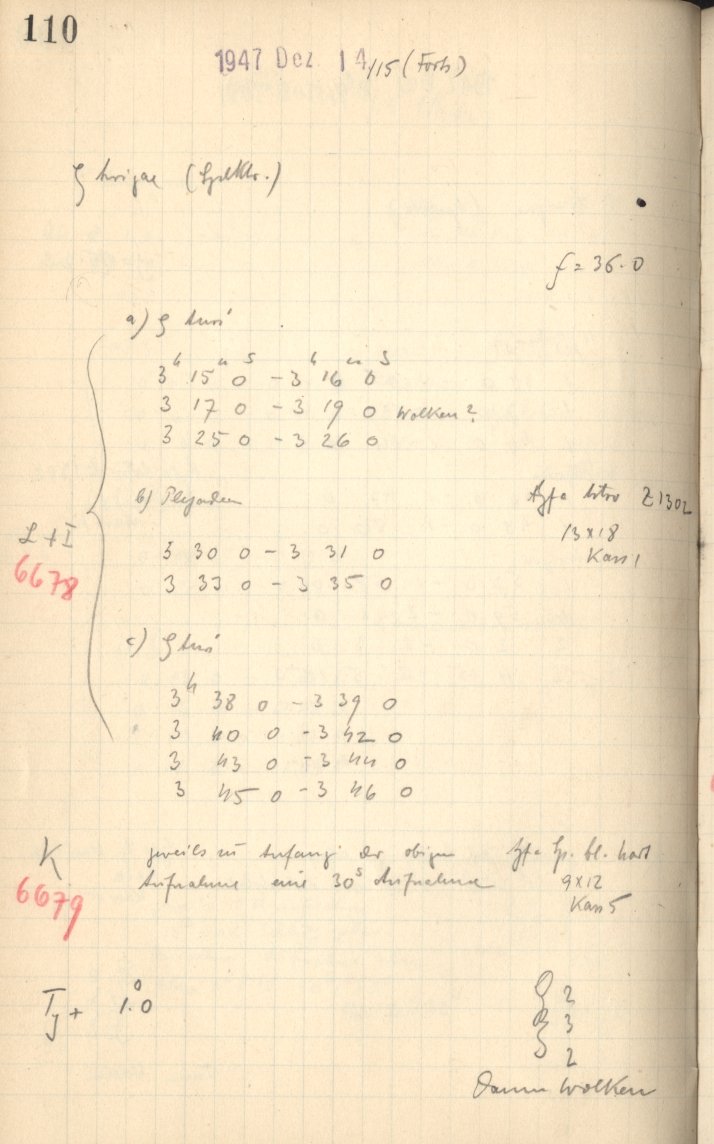 110
1947 Dez. 14/15 (Forts)
ζ Aurigae
f = 36.0
a) ζ Auri
3h 15m 0s - 3h 16m 0s
3 17 0 - 3 19 0 Wolken?
3 25 0 - 3 26 0
b) Plejaden
Agfa Z1302
13x18
Kass 1
L+I
6678
3 30 0 - 3 31 0
3 33 0 - 3 35 0
c) ζ Auri
3h 38 0 - 3 39 0
3 40 0 - 3 42 0
3 43 0 - 3 44 0
3 45 0 - 3 46 0
K
6679
jeweils zu Anfang der obigen
Aufnahme eine 30s Aufnahme
Agfa Sp. bl. hart
9x12
Kass 5
T + 1.0°
2
3
2
Dann Wolken